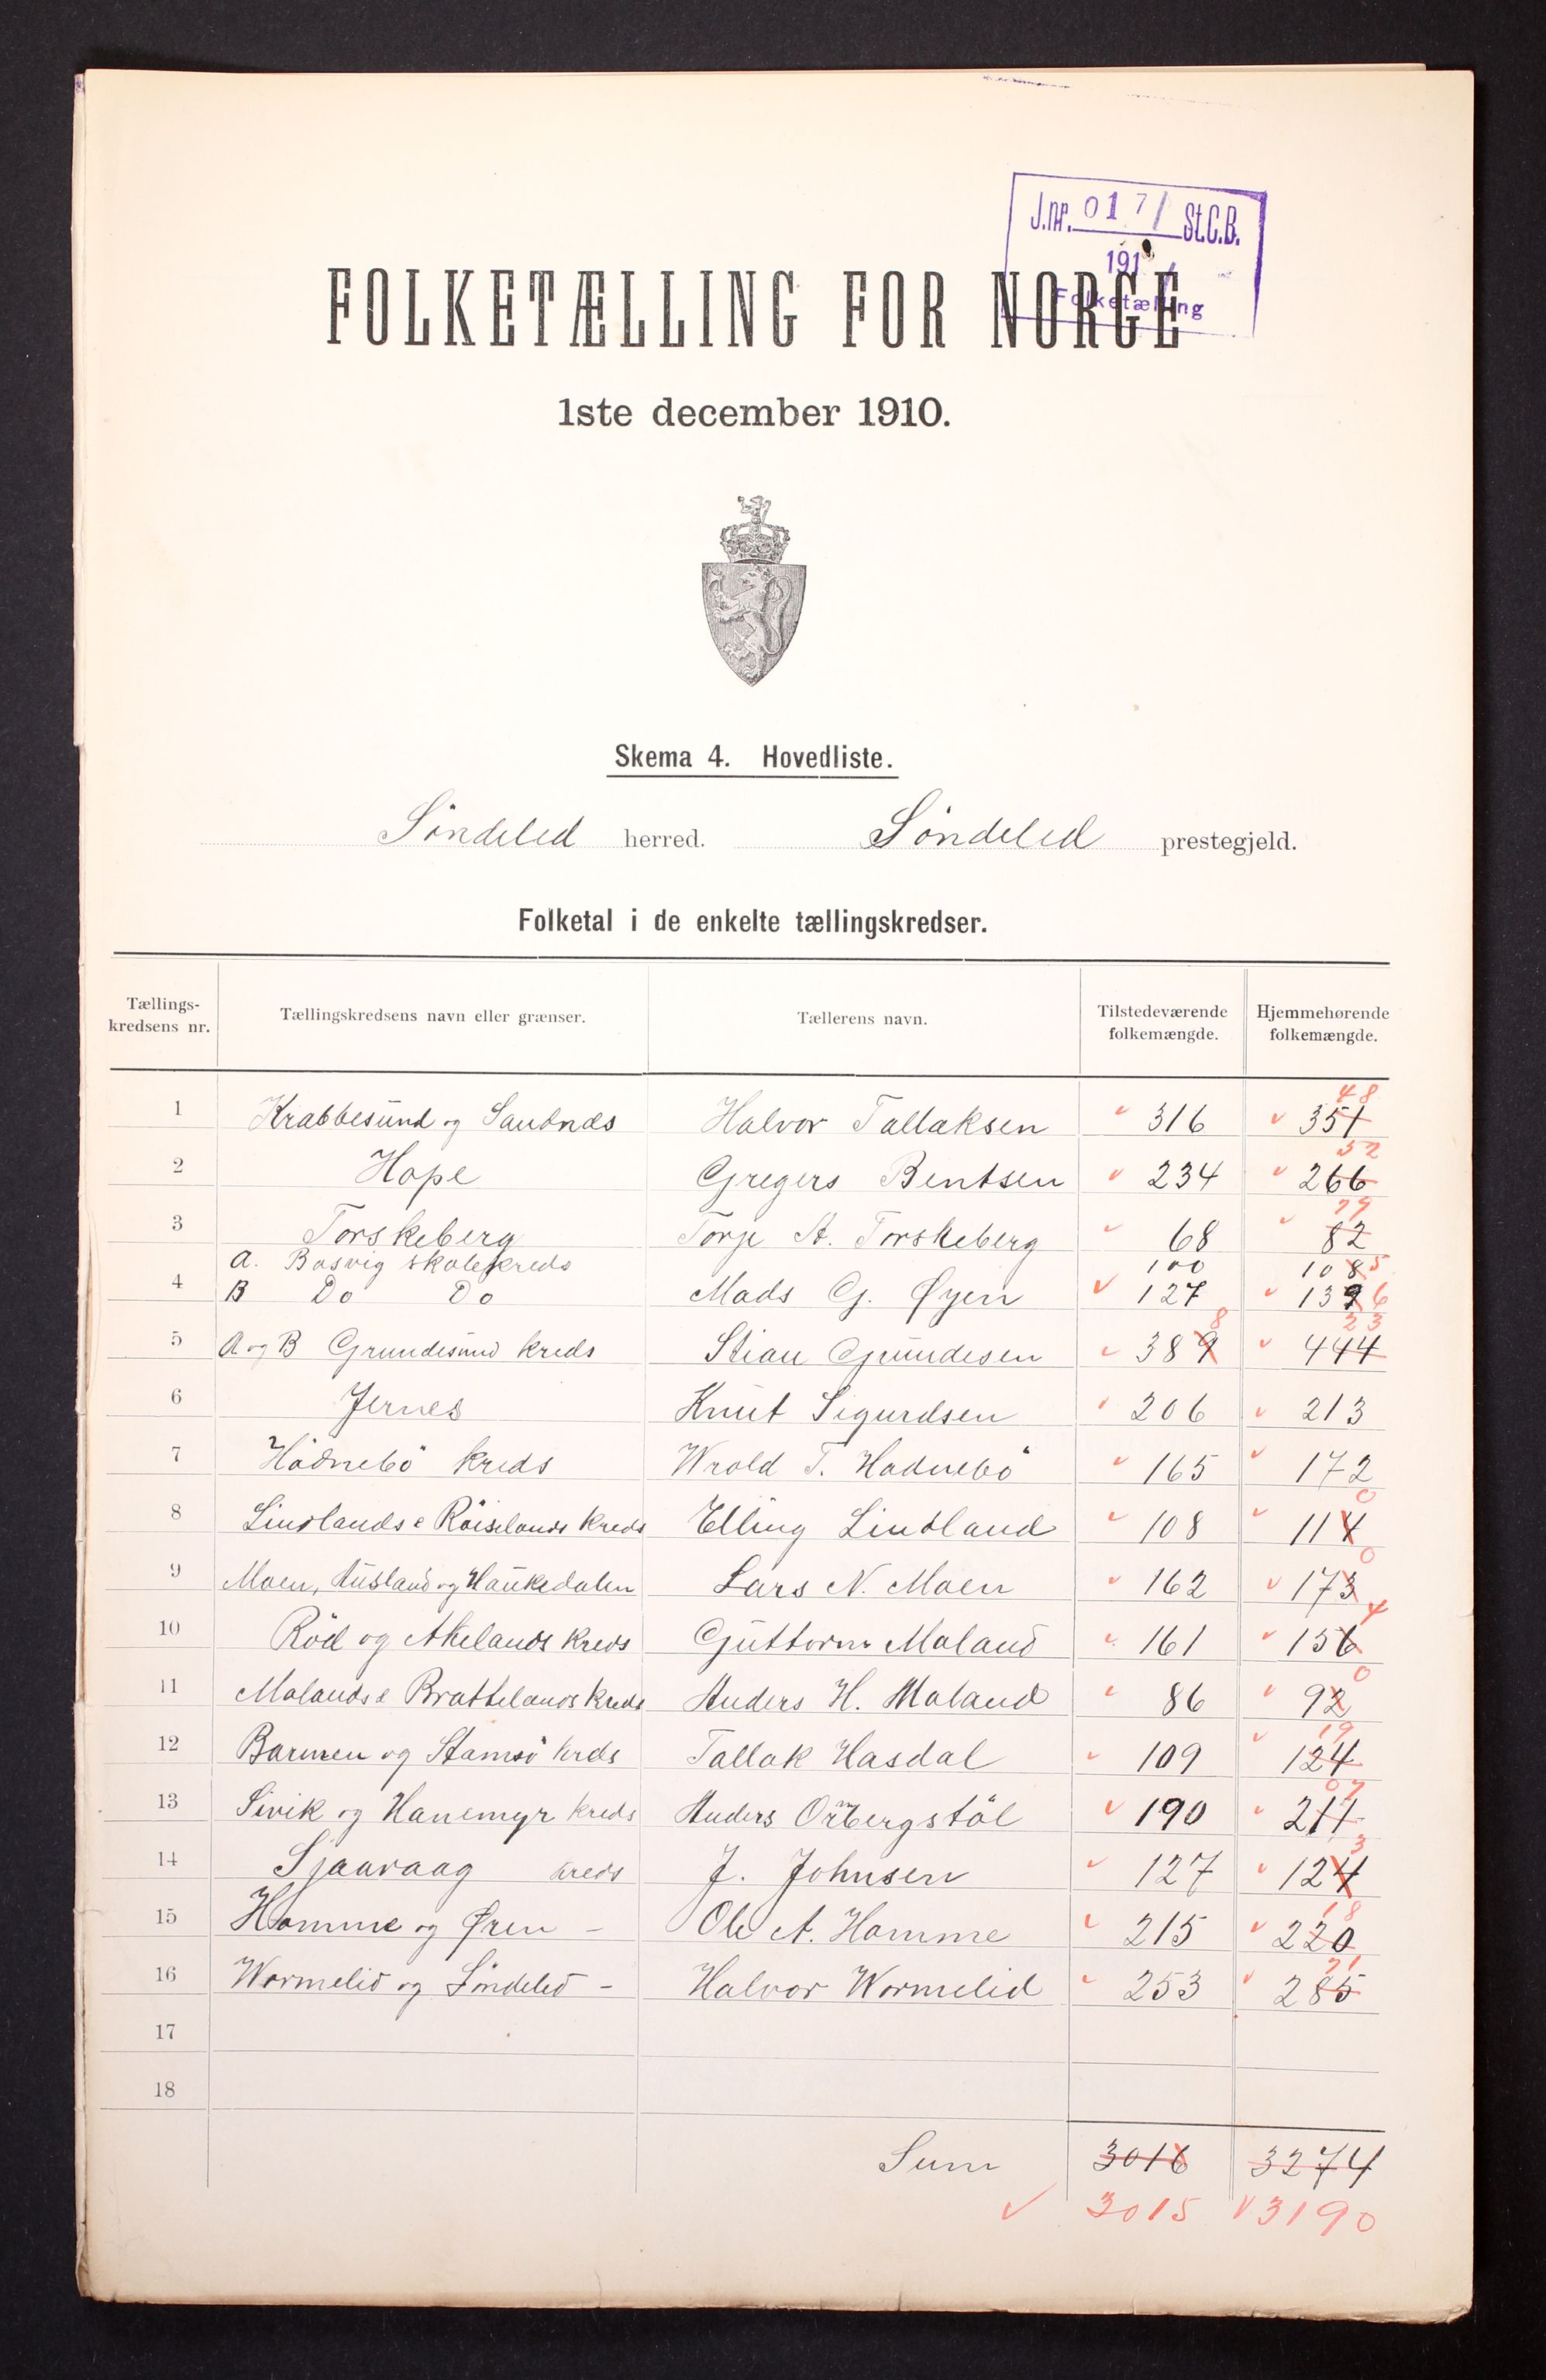 J.nr. 017/ St.C.B.
191
Folketælling
FOLKETÆLLING FOR NORGE
1ste december 1910.
Skema 4. Hovedliste.
Söndeled herred. Söndeled prestegjeld.
Folketal i de enkelte tællingskredser.
Tællings-kredsens nr. Tællingskredsens navn eller grænser. Tællerens navn. Tilstedeværende folkemængde. Hjemmehørende folkemængde.
48
1 Krabbesund og Sandnæs Halvor Tallaksen 316 351
52
2 Hope Gregers Bentsen 234 266
79
3 Torskeberg Torje A. Torskeberg 68 82
A. Bosvig skolekreds 100 108 5
4 B Do Do Mads G. Øyen 127 139 6
8 23
5 A og B Grundesund kreds Stian Gundesen 389 444
6 Jernes Knut Sigurdsen 206 213
7 Hödnebö kreds Wrold T. Hödnebö 165 172
0
8 Lindlands & Röiselands kreds Elling Lindland 108 114
0
9 Moen, Ausland og Haukedalen Lars N. Moen 162 173
4
10 Röd og Akelands kreds Guttorm Maland 161 156
0
11 Malands & Brattelands kreds Anders H. Maland 86 92
19
12 Barmen og Stamsö krds Tallak Hasdal 109 124
07
13 Sivik og Hanemyr kreds Anders Ormbergstöl 190 211
3
14 Sjaavaag kreds J. Johnsen 127 124
18
15 Homme og Øren - Ole A. Homme 215 220
71
16 Wormelid og Söndeled - Halvor Wormelid 253 285
17
18
Sum 3016 3274
3015 3190